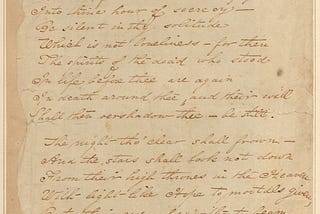 Into thine hour of secrecy:—
Be silent in thy solitude
Which is not loneliness — for then
The spirits of the dead who stood
In life before thee are again
In death around thee, and their will
Shall then overshadow thee — be still.
The night tho' clear shall frown —
And the stars shall look not down
From their high thrones in the Heaven
With light like Hope to mortals given,